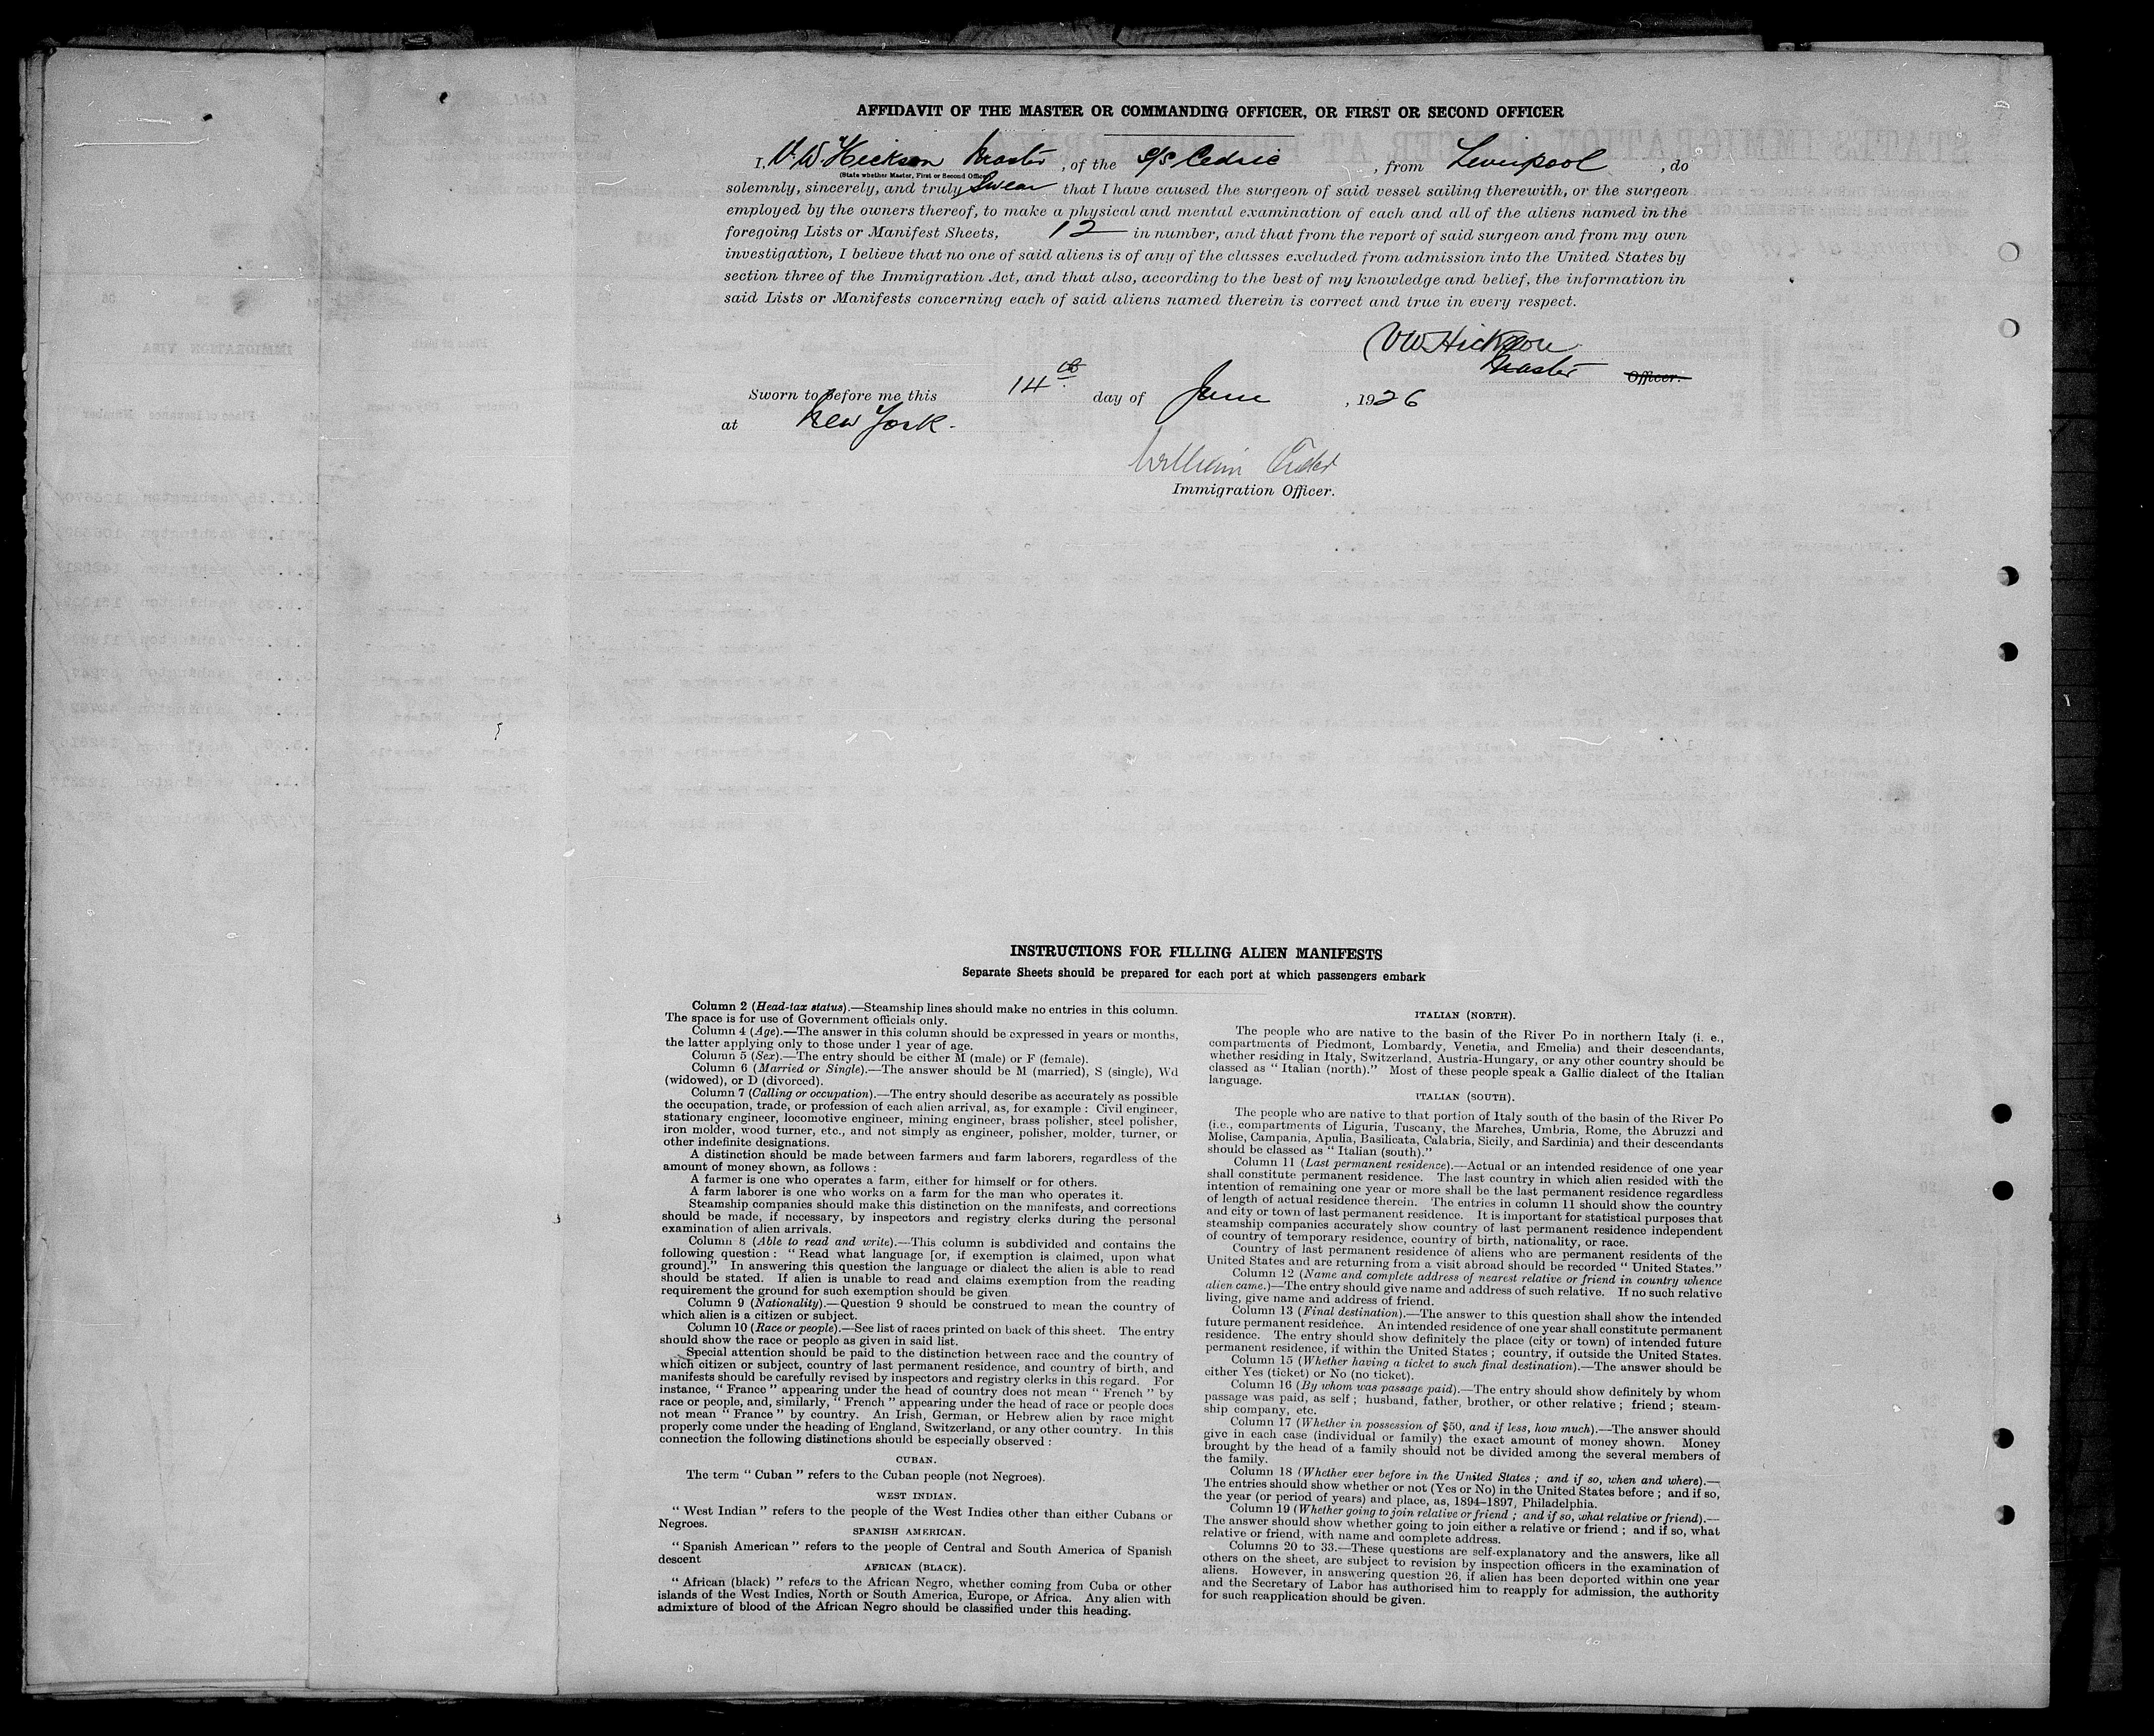 AFFIDAVIT OF THE MASTER OR COMMANDING OFFICER, OR FIRST OR SECOND OFFICER
I, V. W. Hickson Master, of the S/S Cedric, from Liverpool, do
(State whether Master, First or Second Officer)
solemnly, sincerely, and truly Swear that I have caused the surgeon of said vessel sailing therewith, or the surgeon
employed by the owners thereof, to make a physical and mental examination of each and all of the aliens named in the
foregoing Lists or Manifest Sheets, 12 in number, and that from the report of said surgeon and from my own
investigation, I believe that no one of said aliens is of any of the classes excluded from admission into the United States by
section three of the Immigration Act, and that also, according to the best of my knowledge and belief, the information in
said Lists or Manifests concerning each of said aliens named therein is correct and true in every respect.
VW Hickson
Master Officer.
Sworn to before me this 14th day of June, 1926
at New York.
William
Immigration Officer.
INSTRUCTIONS FOR FILLING ALIEN MANIFESTS
Separate Sheets should be prepared for each port at which passengers embark
Column 2 (Head-tax status).—Steamship lines should make no entries in this column.
The space is for use of Government officials only.
Column 4 (Age).—The answer in this column should be expressed in years or months,
the latter applying only to those under 1 year of age.
Column 5 (Sex).—The entry should be either M (male) or F (female).
Column 6 (Married or Single).—The answer should be M (married), S (single), Wd
(widowed), or D (divorced).
Column 7 (Calling or occupation).—The entry should describe as accurately as possible
the occupation, trade, or profession of each alien arrival, as, for example : Civil engineer,
stationary engineer, locomotive engineer, mining engineer, brass polisher, steel polisher,
iron molder, wood turner, etc., and not simply as engineer, polisher, molder, turner, or
other indefinite designations.
A distinction should be made between farmers and farm laborers, regardless of the
amount of money shown, as follows :
A farmer is one who operates a farm, either for himself or for others.
A farm laborer is one who works on a farm for the man who operates it.
Steamship companies should make this distinction on the manifests, and corrections
should be made, if necessary, by inspectors and registry clerks during the personal
examination of alien arrivals.
Column 8 (Able to read and write).—This column is subdivided and contains the
following question : “ Read what language [or, if exemption is claimed, upon what
ground].” In answering this question the language or dialect the alien is able to read
should be stated. If alien is unable to read and claims exemption from the reading
requirement the ground for such exemption should be given
Column 9 (Nationality).—Question 9 should be construed to mean the country of
which alien is a citizen or subject.
Column 10 (Race or people).—See list of races printed on back of this sheet. The entry
should show the race or people as given in said list.
Special attention should be paid to the distinction between race and the country of
which citizen or subject, country of last permanent residence, and country of birth, and
manifests should be carefully revised by inspectors and registry clerks in this regard. For
instance, “ France ” appearing under the head of country does not mean “ French ” by
race or people, and, similarly, “ French ” appearing under the head of race or people does
not mean “ France ” by country. An Irish, German, or Hebrew alien by race might
properly come under the heading of England, Switzerland, or any other country. In this
connection the following distinctions should be especially observed :
CUBAN.
The term “ Cuban ” refers to the Cuban people (not Negroes).
WEST INDIAN.
“ West Indian ” refers to the people of the West Indies other than either Cubans or
Negroes.
SPANISH AMERICAN.
“ Spanish American ” refers to the people of Central and South America of Spanish
descent
AFRICAN (BLACK).
“ African (black) ” refers to the African Negro, whether coming from Cuba or other
islands of the West Indies, North or South America, Europe, or Africa. Any alien with
admixture of blood of the African Negro should be classified under this heading.
ITALIAN (NORTH).
The people who are native to the basin of the River Po in northern Italy (i. e.,
compartments of Piedmont, Lombardy, Venetia, and Emelia) and their descendants,
whether residing in Italy, Switzerland, Austria-Hungary, or any other country should be
classed as “ Italian (north).” Most of these people speak a Gallic dialect of the Italian
language.
ITALIAN (SOUTH).
The people who are native to that portion of Italy south of the basin of the River Po
(i.e., compartments of Liguria, Tuscany, the Marches, Umbria, Rome, the Abruzzi and
Molise, Campania, Apulia, Basilicata, Calabria, Sicily, and Sardinia) and their descendants
should be classed as “ Italian (south).”
Column 11 (Last permanent residence).—Actual or an intended residence of one year
shall constitute permanent residence. The last country in which alien resided with the
intention of remaining one year or more shall be the last permanent residence regardless
of length of actual residence therein. The entries in column 11 should show the country
and city or town of last permanent residence. It is important for statistical purposes that
steamship companies accurately show country of last permanent residence independent
of country of temporary residence, country of birth, nationality, or race.
Country of last permanent residence of aliens who are permanent residents of the
United States and are returning from a visit abroad should be recorded “ United States.”
Column 12 (Name and complete address of nearest relative or friend in country whence
alien came.)—The entry should give name and address of such relative. If no such relative
living, give name and address of friend.
Column 13 (Final destination).—The answer to this question shall show the intended
future permanent residence. An intended residence of one year shall constitute permanent
residence. The entry should show definitely the place (city or town) of intended future
permanent residence, if within the United States ; country, if outside the United States.
Column 15 (Whether having a ticket to such final destination).—The answer should be
either Yes (ticket) or No (no ticket).
Column 16 (By whom was passage paid).—The entry should show definitely by whom
passage was paid, as self ; husband, father, brother, or other relative ; friend ; steam-
ship company, etc.
Column 17 (Whether in possession of $50, and if less, how much).—The answer should
give in each case (individual or family) the exact amount of money shown. Money
brought by the head of a family should not be divided among the several members of
the family.
Column 18 (Whether ever before in the United States ; and if so, when and where).—
The entries should show whether or not (Yes or No) in the United States before ; and if so,
the year (or period of years) and place, as, 1894–1897, Philadelphia.
Column 19 (Whether going to join relative or friend ; and if so, what relative or friend).—
The answer should show whether going to join either a relative or friend ; and if so, what
relative or friend, with name and complete address.
Columns 20 to 33.—These questions are self-explanatory and the answers, like all
others on the sheet, are subject to revision by inspection officers in the examination of
aliens. However, in answering question 26, if alien has been deported within one year
and the Secretary of Labor has authorised him to reapply for admission, the authority
for such reapplication should be given.